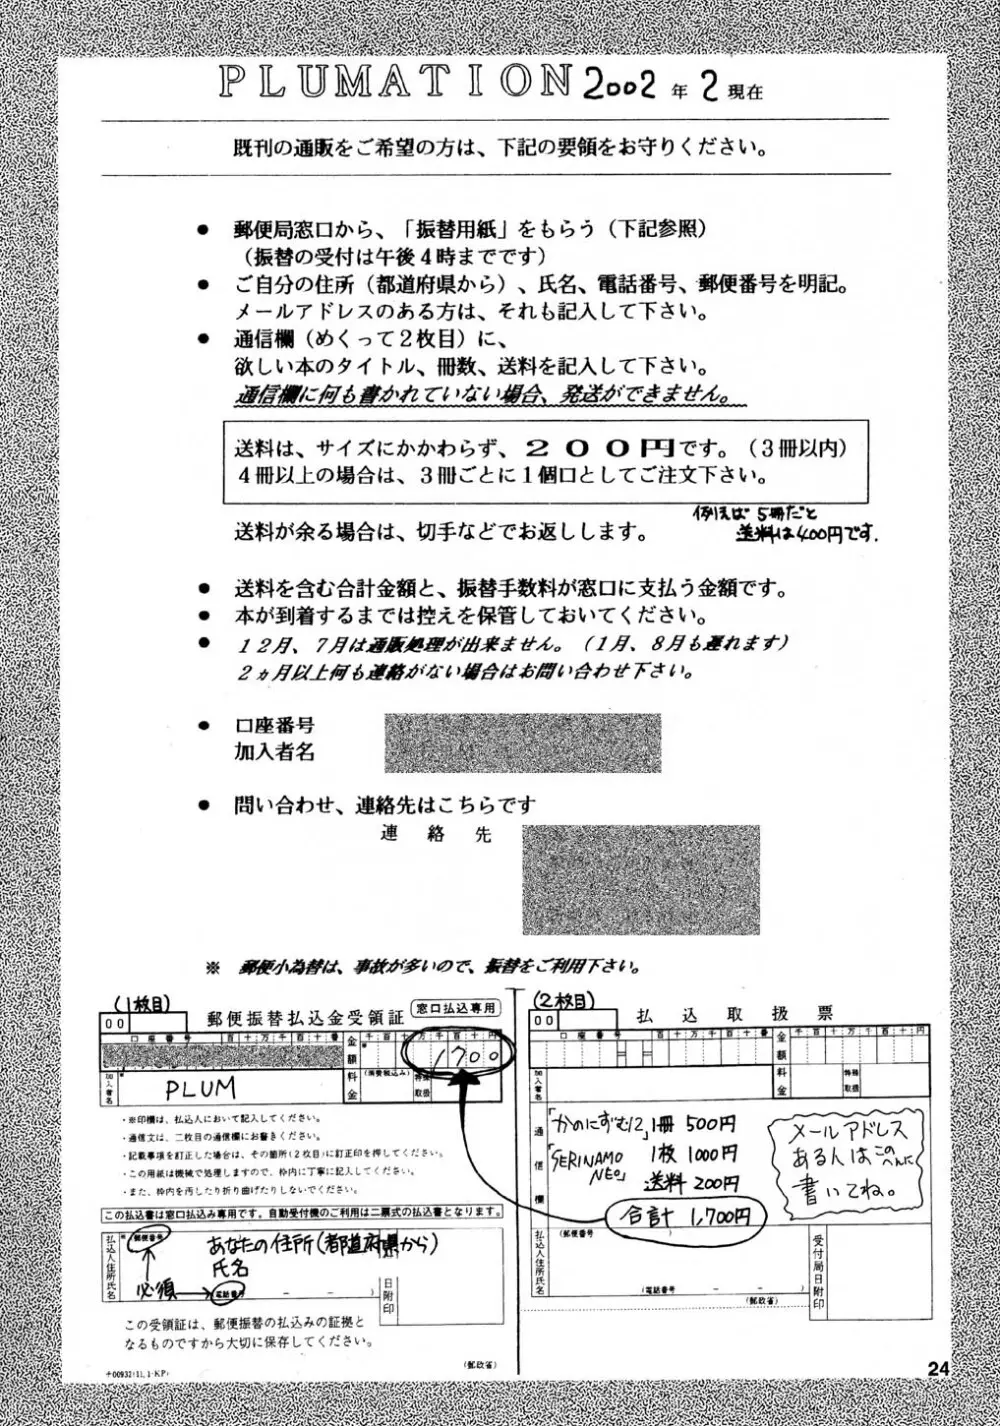 PLUMATION 2002年2現在
既刊の通販をご希望の方は、下記の要領をお守りください。
● 郵便局窓口から、「振替用紙」をもらう（下記参照）
（振替の受付は午後４時までです）
● ご自分の住所（都道府県から）、氏名、電話番号、郵便番号を明記。
メールアドレスのある方は、それも記入して下さい。
● 通信欄（めくって２枚目）に、
欲しい本のタイトル、冊数、送料を記入して下さい。
通信欄に何も書かれていない場合、発送ができません。
送料は、サイズにかかわらず、２００円です。（３冊以内）
４冊以上の場合は、３冊ごとに１個口としてご注文下さい。
例えば 5冊だと
送料は400円です.
送料が余る場合は、切手などでお返しします。
● 送料を含む合計金額と、振替手数料が窓口に支払う金額です。
● 本が到着するまでは控えを保管しておいてください。
● １２月、７月は通販処理が出来ません。（１月、８月も遅れます）
２ヵ月以上何も連絡がない場合はお問い合わせ下さい。
● 口座番号
加入者名
● 問い合わせ、連絡先はこちらです
連絡先
※ 郵便小為替は、事故が多いので、振替をご利用下さい。
(1枚目)
00
郵便振替払込金受領証
窓口払込専用
口座番号 百十万千百十番
金額
千百十万千百十円
1700
加入者名
PLUM
料金
(消費税込み)
特殊取扱
・※印欄は、払込人において記入してください。
・通信文は、二枚目の通信欄にお書きください。
・記載事項を訂正した場合は、その箇所(２枚目)に訂正印を押してください。
・この用紙は機械で処理しますので、枠内に丁寧に記入してください。
・また、枠内を汚したり折り曲げたりしないでください。
この払込書は窓口払込み専用です。自動受付機のご利用は二票式の払込書となります。
払込人住所氏名
*郵便番号
あなたの住所(都道府県から)
氏名
必須
電話番号
日附印
この受領証は、郵便振替の払込みの証拠と
なるものですから大切に保存してください。
(郵政省)
(2枚目)
00
払込取扱票
口座番号 百十万千百十番
金額
千百十万千百十円
加入者名
料金
特殊取扱
通信欄
「かのにずむ12」1冊 500円
「SERINAMO NEO」 1枚 1000円
送料 200円
合計 1,700円
メールアドレス
ある人はこのへんに
書いてね。
払込人住所氏名
(郵便番号 )
(電話番号 - - )
受付局日附印
(郵政省)
24